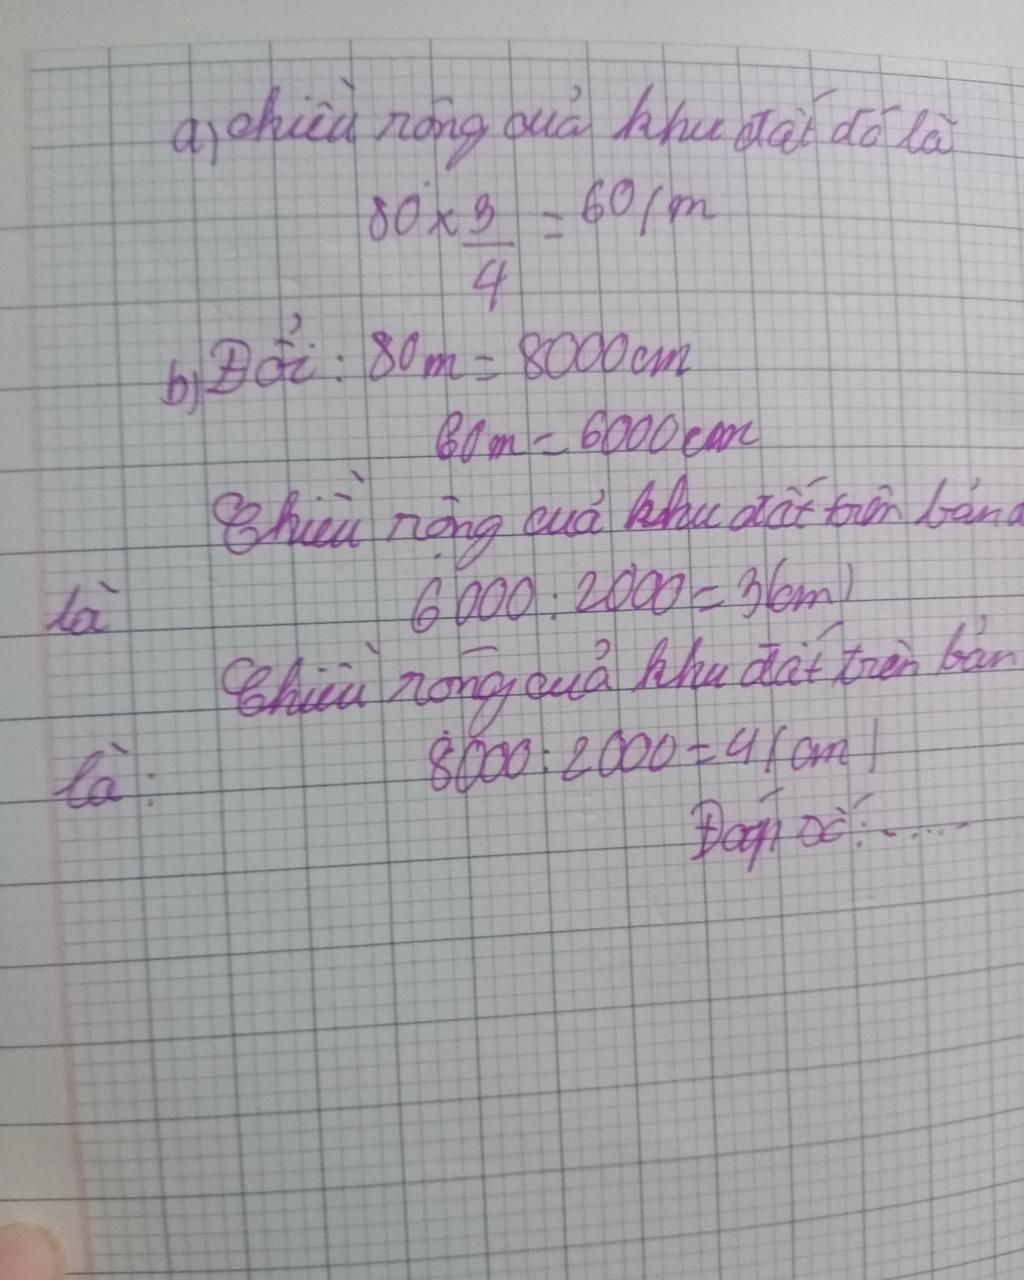 a, chiều rộng quả khu đất đó là
80 × 3/4 = 60 (m
b) Đổi : 80m = 8000cm
60m = 6000cm
Chiều rộng quả khu đất trên bản
là 6000 : 2000 = 3(cm)
Chiều rộng quả khu đất trên bản
là : 8000 : 2000 = 4 (cm)
Đáp số : .....